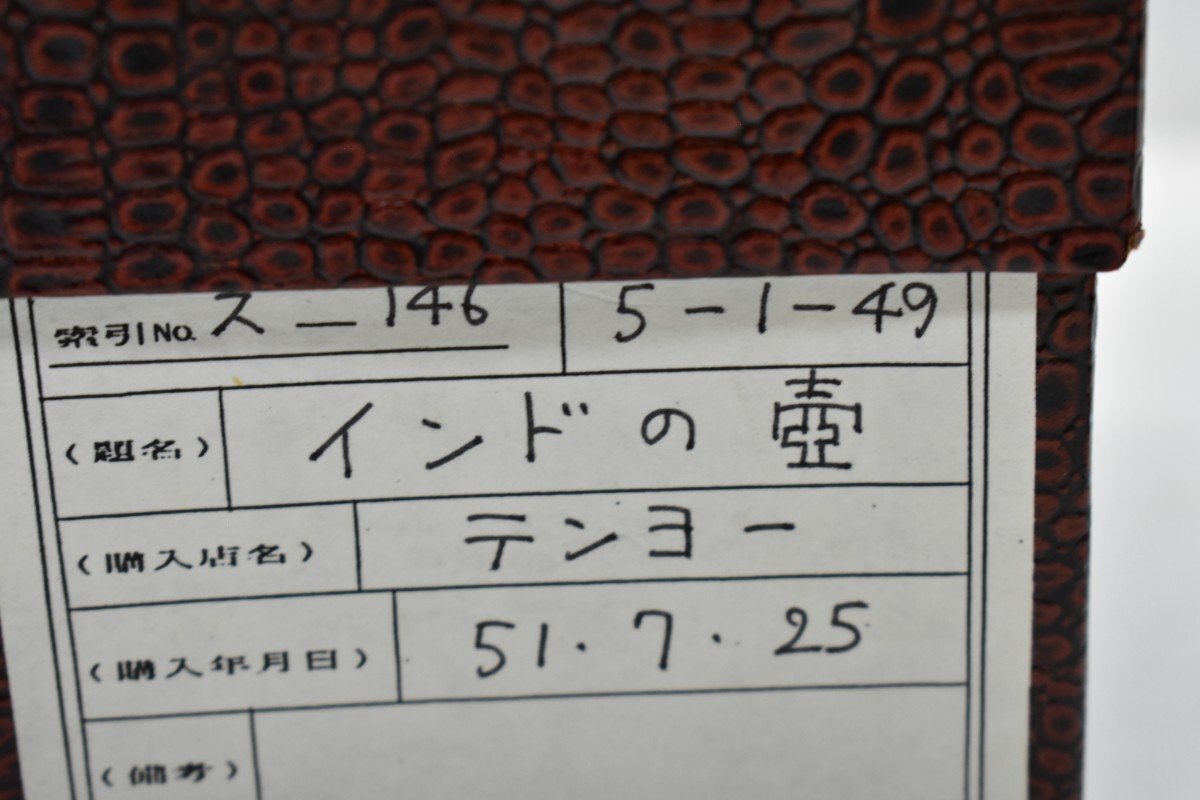 索引NO. ス－146 5－1－49
(題名) インドの壺
(購入店名) テンヨー
(購入年月日) 51.7.25
(備考)